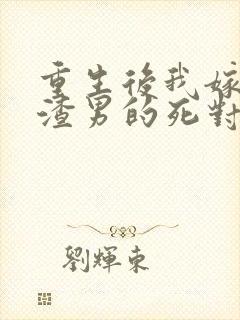 重生後我嫁
渣男的死對
劉輝東